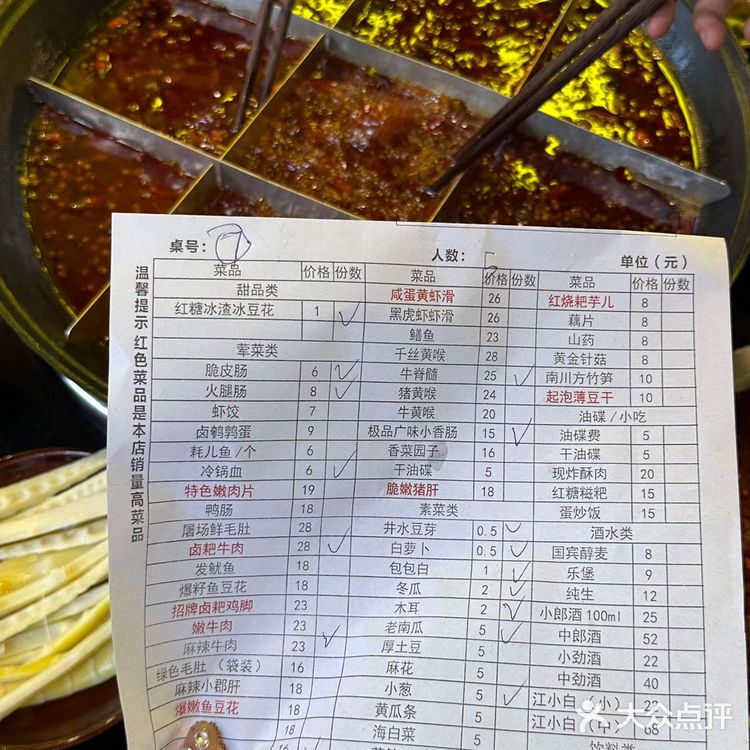 桌号: 7 人数: 5 单位（元）
温馨提示 红色菜品是本店销量高菜品
菜品 价格 份数
甜品类
红糖冰渣冰豆花 1 ✓
荤菜类
脆皮肠 6 ✓
火腿肠 8 ✓
虾饺 7
卤鹌鹑蛋 9
耗儿鱼/个 6
冷锅血 6 ✓
特色嫩肉片 19
鸭肠 18
屠场鲜毛肚 28
卤耙牛肉 28 ✓
发鱿鱼 18
爆籽鱼豆花 18
招牌卤耙鸡脚 23
嫩牛肉 23 ✓
麻辣牛肉 23
绿色毛肚（袋装） 16
麻辣小郡肝 18
爆嫩鱼豆花 18
18
16
菜品 价格 份数
咸蛋黄虾滑 26
黑虎虾虾滑 26
鳝鱼 23
千丝黄喉 28
牛脊髓 25 ✓
猪黄喉 24
牛黄喉 20
极品广味小香肠 15 ✓
香菜园子 16
干油碟 5
脆嫩猪肝 18
素菜类
井水豆芽 0.5 ✓
白萝卜 0.5 ✓
包包白 1 ✓
冬瓜 2 ✓
木耳 2 ✓
老南瓜 5 ✓
厚土豆 5
麻花 5
小葱 5 ✓
黄瓜条 5
海白菜 5
菜品 价格 份数
红烧耙芋儿 8
藕片 8
山药 8
黄金针菇 8
南川方竹笋 10
起泡薄豆干 10
油碟/小吃
油碟费 5
干油碟 5
现炸酥肉 20
红糖糍粑 15
蛋炒饭 15
酒水类
国宾醇麦 8
乐堡 9
纯生 12
小郎酒100ml 25
中郎酒 52
小劲酒 22
中劲酒 40
江小白（小） 22
江小白（中） 68
饮料类
大众点评